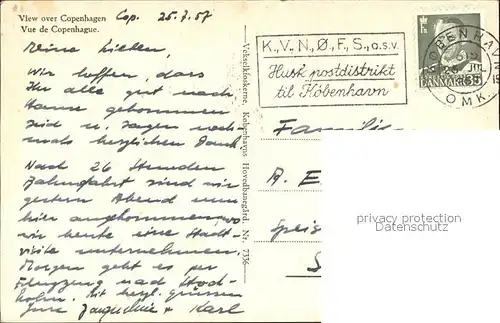 View over Copenhagen
Vue de Copenhague.
Cop. 25.7.57
Meine Lieben,
Wir hoffen, dass
Ihr alle gut nach
Hause gekommen
seid u. sagen noch-
mals herzlichen Dank
Nach 26 Stunden
Bahnfahrt sind wir
gestern Abend nun
hier angekommen, wo
wir heute eine Stadt-
visite unternehmen.
Morgen geht es per
Flugzeug nach Stock-
holm. Mit herzl. Grüssen
Eure Jacqueline + Karl
Vekselkioskerne, Københavns Hovedbanegård. Nr. 7356
K., V., N., Ø., F., S., o.s.v.
Husk postdistrikt
til København
KØBENHAVN
OMK.
DANMARK
Familie
R. E
Speis
S
privacy protection
www.oldthing.de